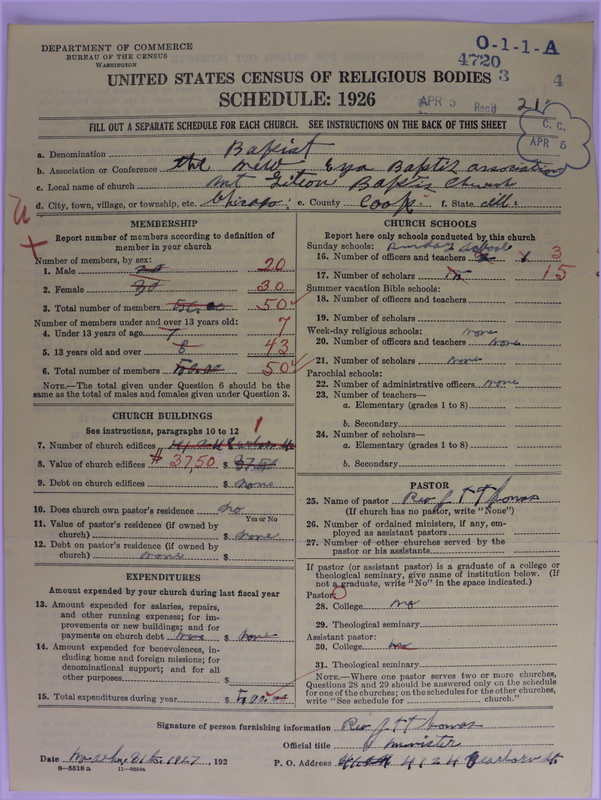 DEPARTMENT OF COMMERCE
BUREAU OF THE CENSUS
WASHINGTON
O-1-1-A
4720
3 4
UNITED STATES CENSUS OF RELIGIOUS BODIES
SCHEDULE: 1926
APR 5 Rec'd 21
FILL OUT A SEPARATE SCHEDULE FOR EACH CHURCH. SEE INSTRUCTIONS ON THE BACK OF THIS SHEET
C. C.
APR 5
a. Denomination Baptist
b. Association or Conference the New Era Baptis association
c. Local name of church Mt Baptis Church
d. City, town, village, or township, etc. Chicago: e. County Cook f. State Ill.
MEMBERSHIP
Report number of members according to definition of
member in your church
Number of members, by sex:
1. Male 20
2. Female 30 30
3. Total number of members 50
Number of members under and over 13 years old:
4. Under 13 years of age 7 7
5. 13 years old and over 8 43
6. Total number of members 50
NOTE.—The total given under Question 6 should be
same as the total of males and females given under Question 3.
CHURCH BUILDINGS
See instructions, paragraphs 10 to 12
7. Number of church edifices 1
8. Value of church edifices # 37,50 $ 37.50
9. Debt on church edifices $ none
10. Does church own pastor's residence? no
Yes or No
11. Value of pastor's residence (if owned by
church) $ none
12. Debt on pastor's residence (if owned by
church) none $
EXPENDITURES
Amount expended by your church during last fiscal year
13. Amount expended for salaries, repairs,
and other running expenses; for im-
provements or new buildings; and for
payments on church debt none $ none
14. Amount expended for benevolences, in-
cluding home and foreign missions; for
denominational support; and for all
other purposes $
15. Total expenditures during year $ 50.00
CHURCH SCHOOLS
Report here only schools conducted by this church
Sunday schools: Sunday school
16. Number of officers and teachers 3
17. Number of scholars 15 15
Summer vacation Bible schools:
18. Number of officers and teachers
19. Number of scholars
Week-day religious schools: none
20. Number of officers and teachers none
21. Number of scholars none
Parochial schools:
22. Number of administrative officers none
23. Number of teachers—
a. Elementary (grades 1 to 8)
b. Secondary
24. Number of scholars—
a. Elementary (grades 1 to 8)
b. Secondary
PASTOR
25. Name of pastor Rev J T Thomas
(If church has no pastor, write "None")
26. Number of ordained ministers, if any, em-
ployed as assistant pastors
27. Number of other churches served by the
pastor or his assistants
If pastor (or assistant pastor) is a graduate of a college or
theological seminary, give name of institution below. (If
not a graduate, write "No" in the space indicated.)
Pastor:
28. College no
29. Theological seminary
Assistant pastor:
30. College
31. Theological seminary
NOTE.—Where one pastor serves two or more churches,
Questions 28 and 29 should be answered only on the schedule
for one of the churches; on the schedules for the other churches,
write "See schedule for church."
Signature of person furnishing information Rev J T Thomas
Official title minister
Date 1927, 192
P. O. Address 4124 Dearborn St.
8—5518 a 11—9084a